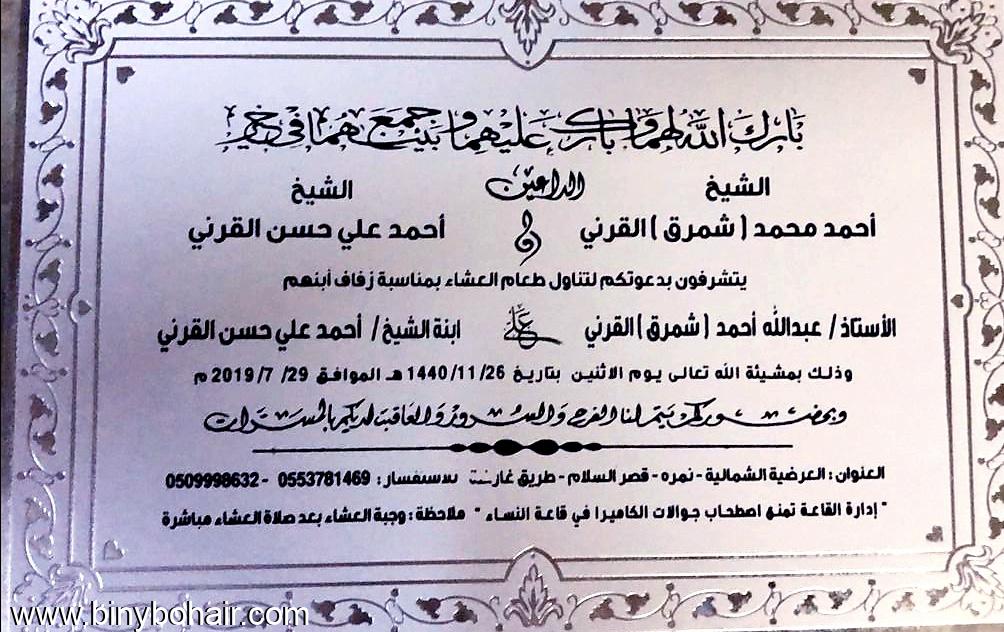 بارك الله لهما وبارك عليهما وجمع بينهما في خير
الشيخ الداعين الشيخ
أحمد محمد ( شمرق ) القرني و أحمد علي حسن القرني
يتشرفون بدعوتكم لتناول طعام العشاء بمناسبة زفاف أبنهم
الأستاذ / عبدالله أحمد ( شمرق ) القرني على ابنة الشيخ / أحمد علي حسن القرني
وذلك بمشيئة الله تعالى يوم الاثنين بتاريخ 1440/11/26 هـ الموافق 29/ 7/ 2019 م
وبحضوركم يتم لنا الفرح والسرور والعاقبة لديكم بالمسرات
العنوان : العرضية الشمالية - نمره - قصر السلام - طريق للاستفسار : 0553781469 - 0509998632
" إدارة القاعة تمنع اصطحاب جوالات الكاميرا في قاعة النساء " ملاحظة : وجبة العشاء بعد صلاة العشاء مباشرة
www.binybohair.com